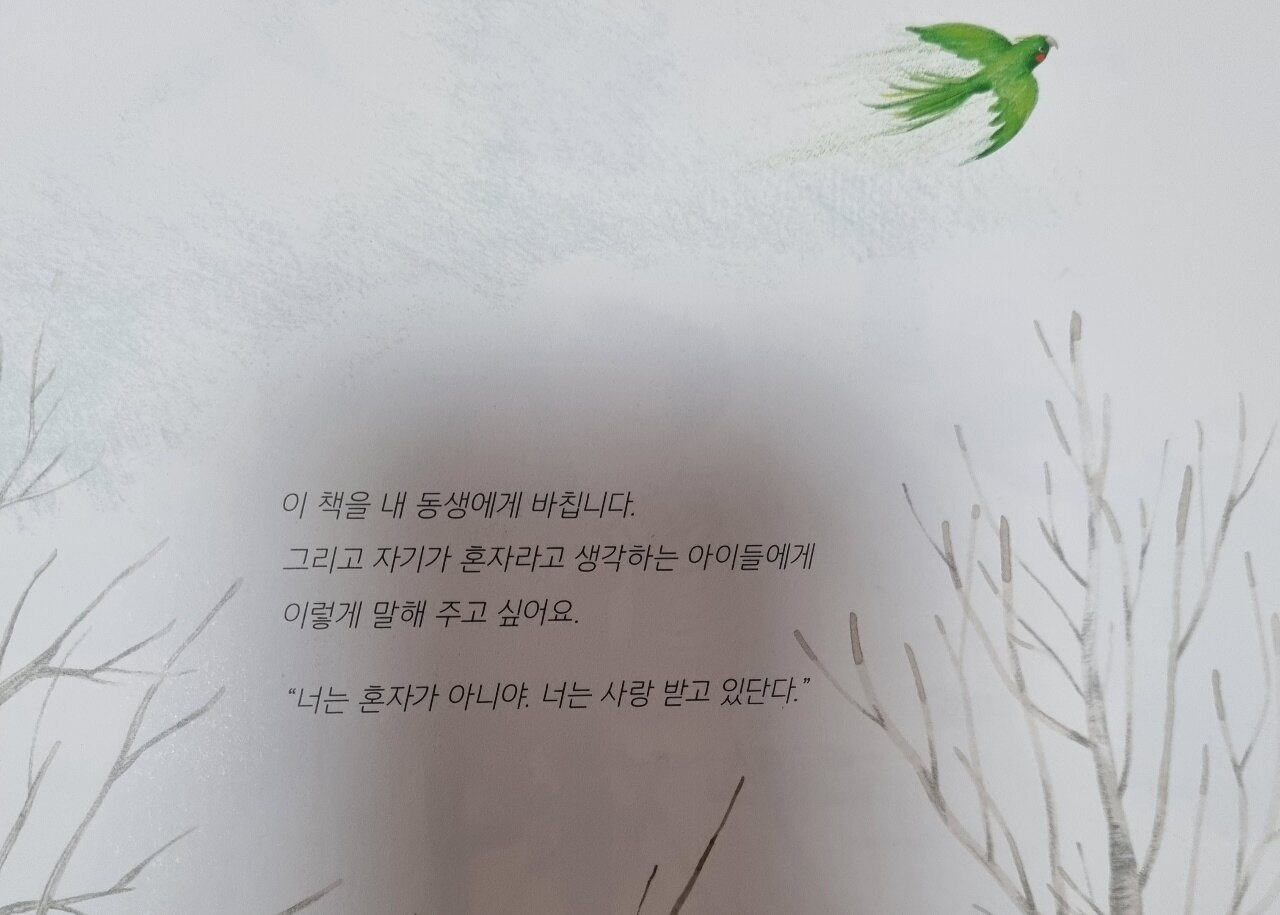 이 책을 내 동생에게 바칩니다.
그리고 자기가 혼자라고 생각하는 아이들에게
이렇게 말해 주고 싶어요.
“너는 혼자가 아니야. 너는 사랑 받고 있단다.”